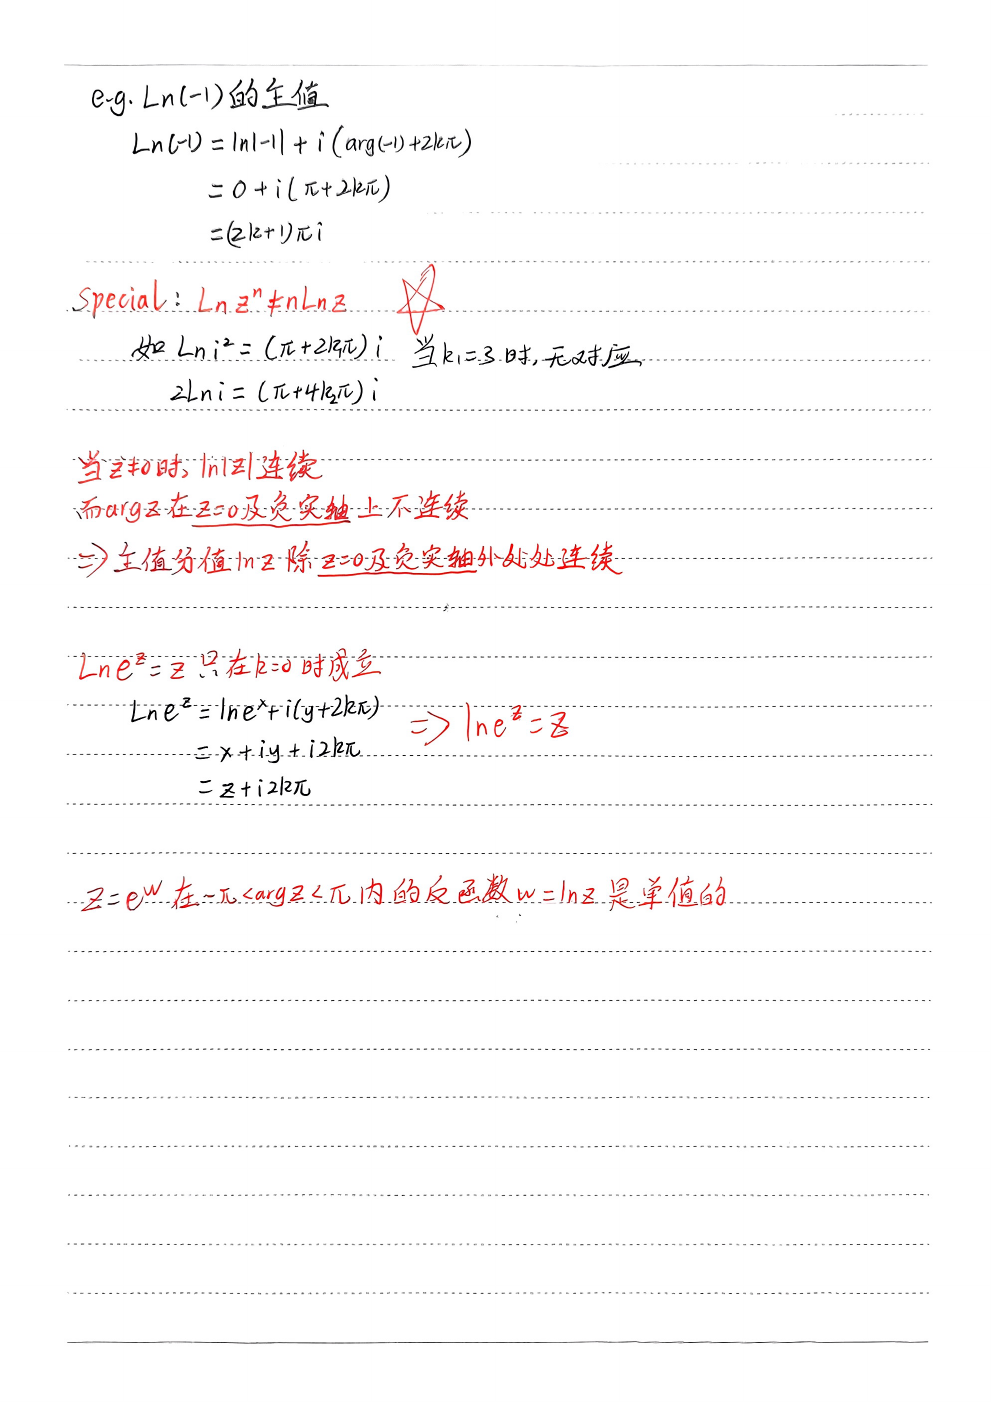 e.g. Ln(-1)的主值
Ln(-1) = ln|-1| + i(arg(-1)+2kπ)
= 0 + i(π+2kπ)
=(2k+1)πi
Special: Ln zⁿ ≠ nLn z
如 Ln i² = (π+2k₁π)i 当k₁=3时,无对应
2Ln i = (π+4k₂π)i
当z≠0时, ln|z|连续
而argz在z=0及负实轴上不连续
=> 主值分值lnz除z=0及负实轴外处处连续
Ln e^z = z 只在k=0时成立
Ln e^z = ln e^x + i(y+2kπ) => ln e^z = z
= x + iy + i2kπ
= z + i2kπ
z = e^w 在 -π<argz<π内的反函数w=lnz是单值的